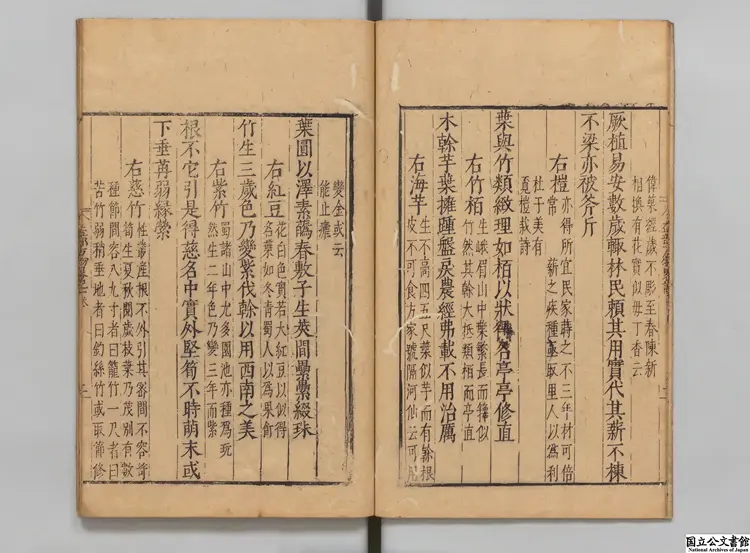 偉蔂經歲不彫至春陳新
相換有花實似毋丁香云
厥植易安數歲輒林民賴其用實代其薪不棟
不梁亦被斧斤
右榿
亦得所宜民家蒔之不三年材可倍
常薪之疾種亟取里人以爲利
杜子美有
覔榿栽詩
葉與竹類緻理如栢以狀得名亭亭修直
右竹栢
生峨眉山中葉繁長而籜似
竹然其幹大抵類栢而亭直
木幹芋葉擁踵盤戾農經弗載不用治厲
右海芋
生不高四五尺葉似芋而有幹根
皮不可食方家號隔河仙云可用
變金或云
能止瘧
葉圓以澤素蘤春敷子生莢間纍纍綴珠
右紅豆
花白色實若大紅豆以似得
名葉如冬青蜀人以爲果飣
竹生三歲色乃變紫伐幹以用西南之美
右紫竹
蜀諸山中尤多園池亦種爲玩
然生二年色乃變三年而紫
根不它引是得慈名中實外堅筍不時萌末或
下垂苒弱緣縈
右慈竹
性叢產根不外引其密間不容笴
筍生夏秋閱歲枝葉乃茂別有數
種節間容八九寸者曰籠竹一尺者曰
苦竹弱稍垂地者曰釣絲竹或取節修
国立公文書館
National Archives of Japan